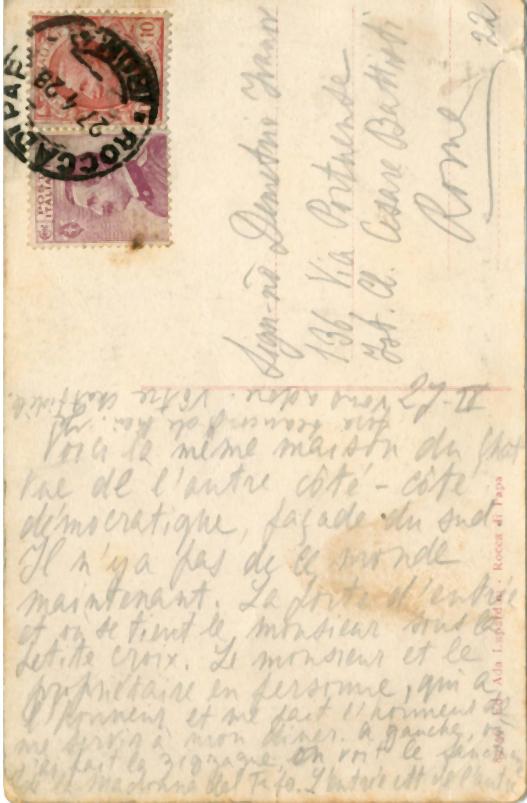 10
POSTE ITALIANE
ROCCA DI PAPA
27.4.28
22
Demetrio Ivanov
136 Via Portuense
Ist. Cl. Cesare Battisti
Rome
27-II
Voici la même maison du
vue de l'autre côté - côté
démocratique, façade du sud.
Il n'y a pas de ce monde
maintenant. La porte d'entrée
et où se tient le monsieur sous la
petite croix. Le monsieur est le
propriétaire en personne, qui a
l'honneur et me fait l'honneur de
me servir à mon diner. à gauche, où
fait la on voit le
la Madonna del Tufo. L'entrée est de l'autre
Ada - Rocca di Papa